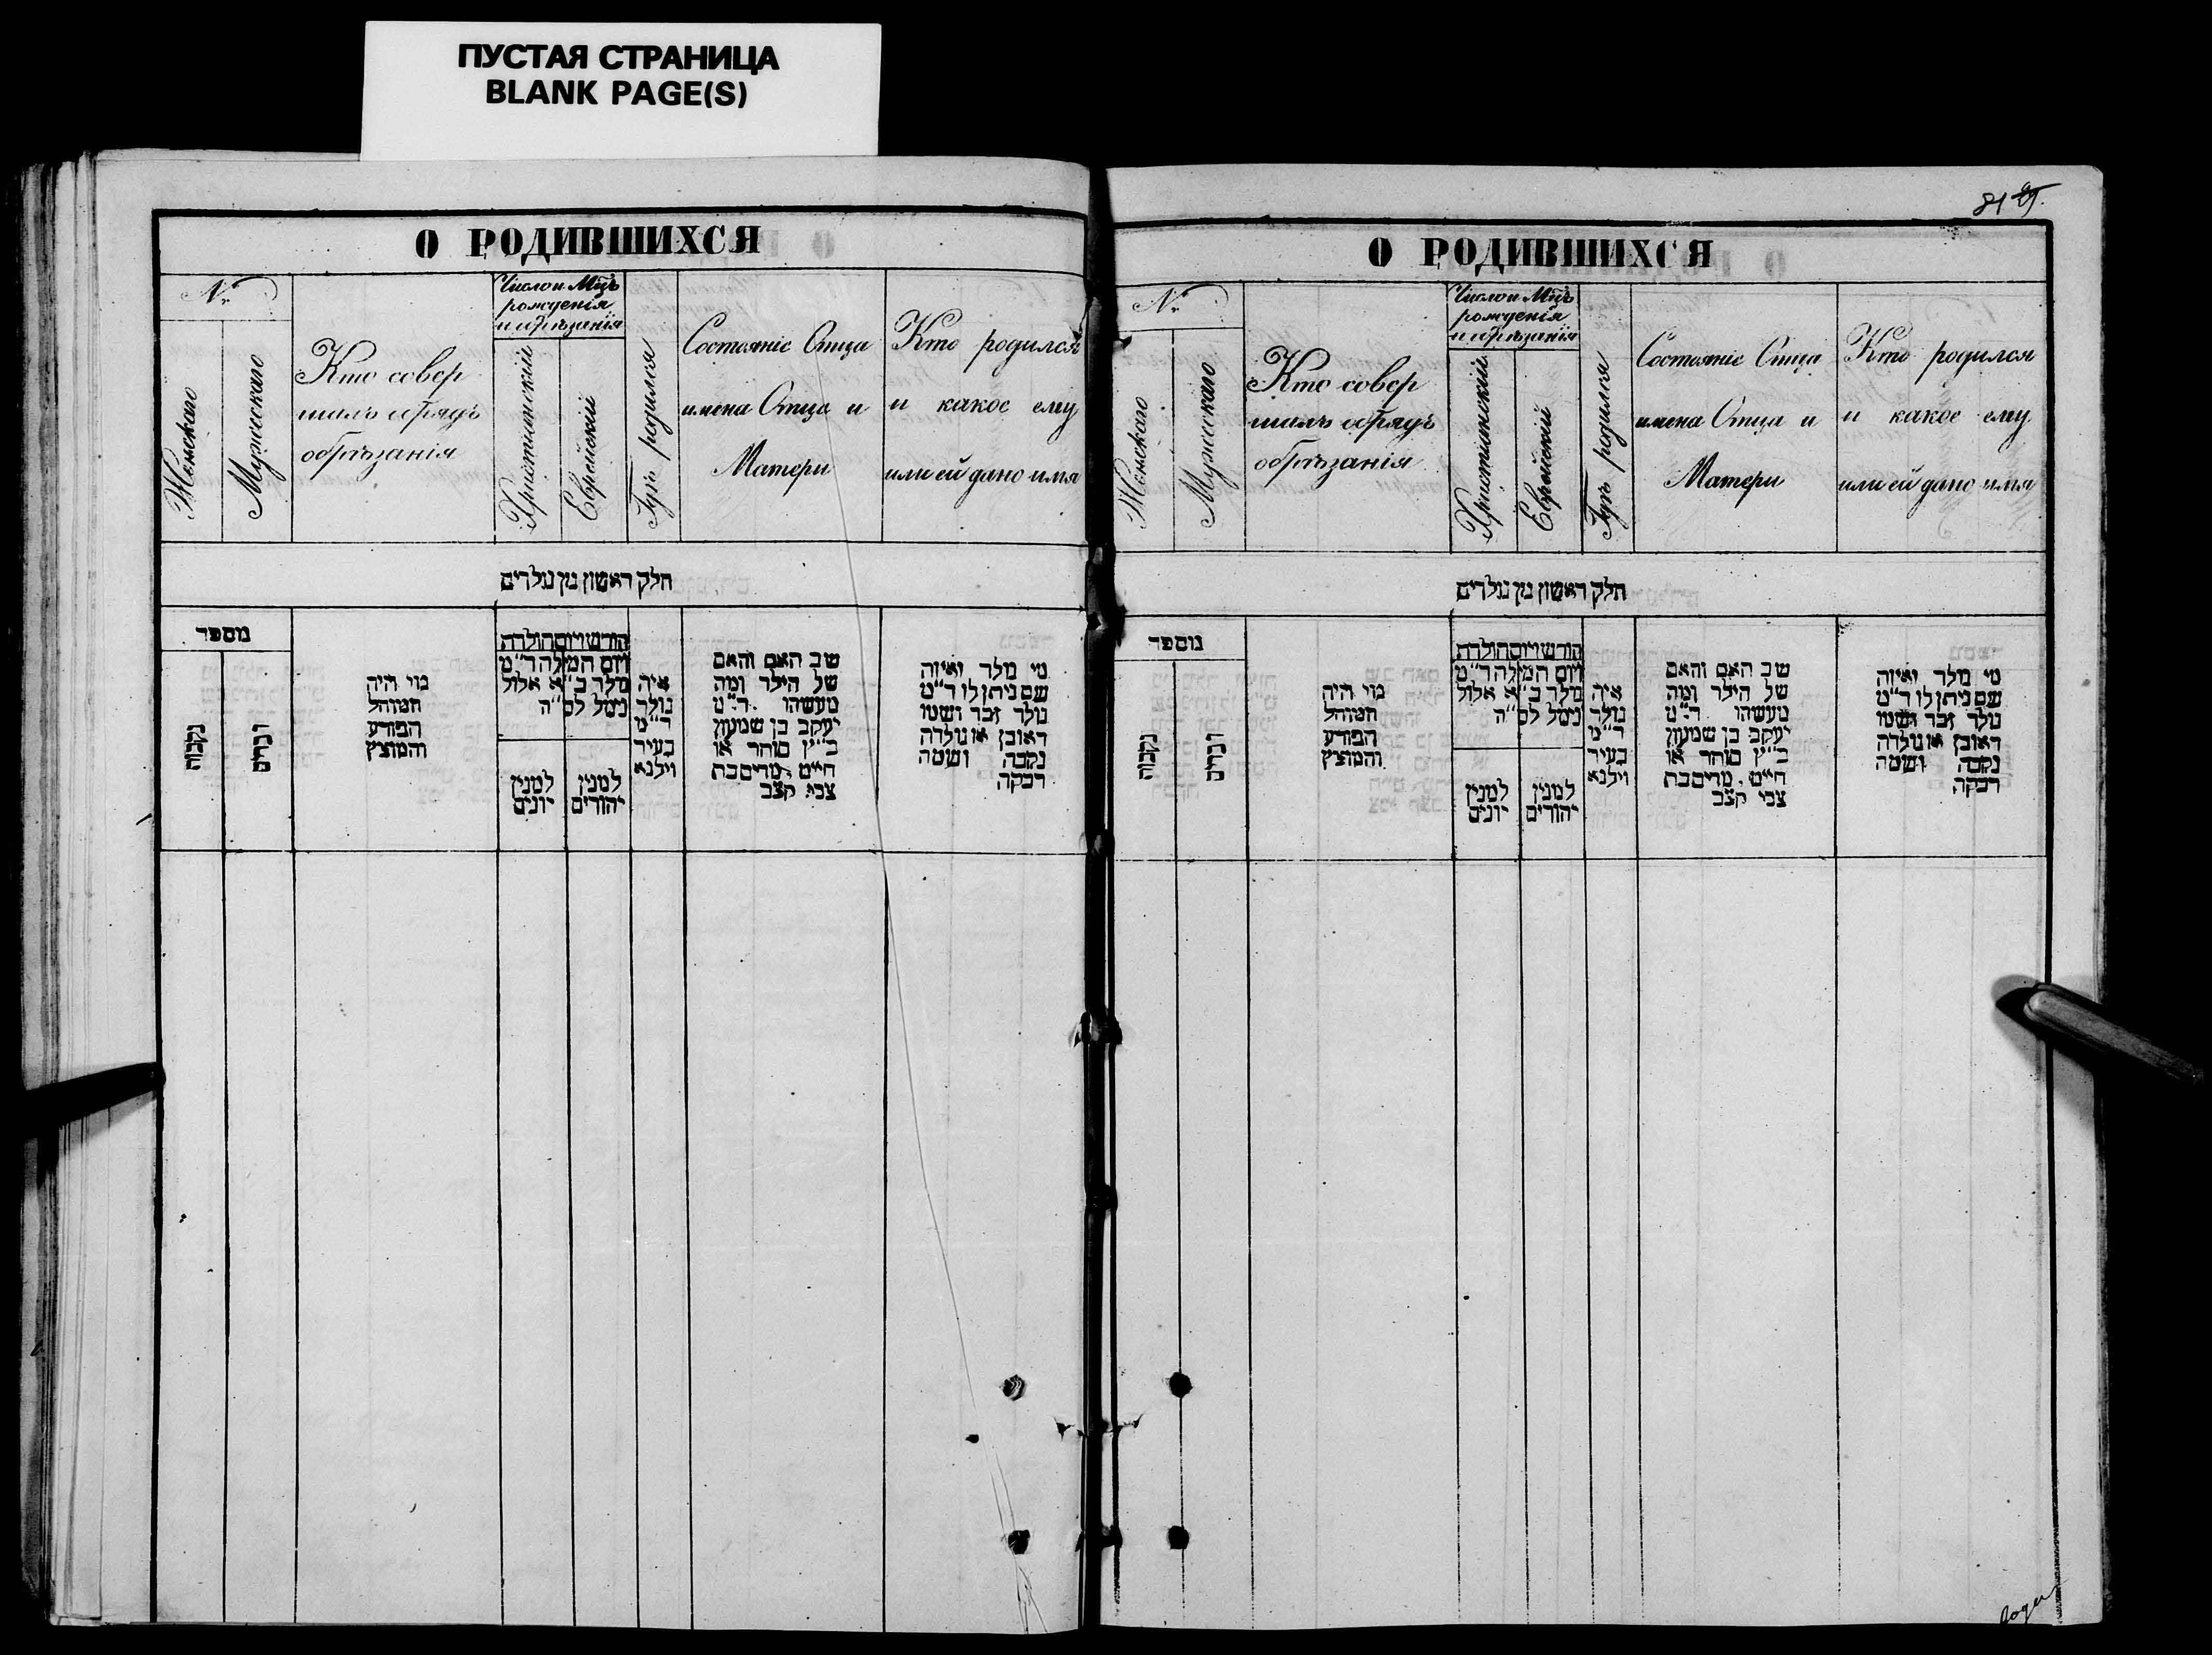 ПУСТАЯ СТРАНИЦА
BLANK PAGE(S)
О РОДИВШИХСЯ
№
Женскаго
Мужескаго
Кто совер
шалъ обрядъ
обрѣзанія
Число и Мцъ
рожденія
и обрѣзанія
Христіанскій
Еврейскій
Гдѣ родился
Состояніе Отца
имена Отца и
Матери
Кто родился
и какое ему
или ей дано имя
חלק ראשון מן נולדים
מספר
נקבות
זכרים
מי היה
המוהל
הפורע
והמוצץ
חודש ויום הולדת
ויום המילה ד"מ
נולד ב"א אלול
נימל לס"ה
למנין
יונים
למנין
יהודים
איה
נולד
ד"מ
בעיר
וילנא
שב האב והאם
של הילד ומה
מעשהו ד"מ
יעקב בן שמעון
כ"ץ סוחר או
חייט מרים בת
צבי קצב
מי נולד ואיזה
שם ניתן לו ד"מ
נולד זכר ושמו
ראובן או נולדה
נקבה ושמה
רבקה
81
О РОДИВШИХСЯ
№
Женскаго
Мужескаго
Кто совер
шалъ обрядъ
обрѣзанія
Число и Мцъ
рожденія
и обрѣзанія
Христіанскій
Еврейскій
Гдѣ родился
Состояніе Отца
имена Отца и
Матери
Кто родился
и какое ему
или ей дано имя
חלק ראשון מן נולדים
מספר
נקבות
זכרים
מי היה
המוהל
הפורע
והמוצץ
חודש ויום הולדת
ויום המילה ד"מ
נולד ב"א אלול
נימל לס"ה
למנין
יונים
למנין
יהודים
איה
נולד
ד"מ
בעיר
וילנא
שב האב והאם
של הילד ומה
מעשהו ד"מ
יעקב בן שמעון
כ"ץ סוחר או
חייט מרים בת
צבי קצב
מי נולד ואיזה
שם ניתן לו ד"מ
נולד זכר ושמו
ראובן או נולדה
נקבה ושמה
רבקה